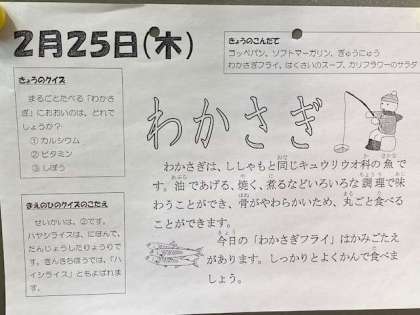 2月25日(木)
きょうのこんだて
コッペパン、ソフトマーガリン、ぎゅうにゅう
わかさぎフライ、はくさいのスープ、カリフラワーのサラダ
きょうのクイズ
まるごとたべる「わかさ
ぎ」におおいのは、どれで
しょうか?
①カルシウム
②ビタミン
③しぼう
わかさぎ
わかさぎは、ししゃもと同じキュウリウオ科の魚で
す。油であげる、焼く、煮るなどいろいろな調理で味
わうことができ、骨がやわらかいため、丸ごと食べる
ことができます。
今日の「わかさぎフライ」はかみごたえ
があります。しっかりとよくかんで食べま
しょう。
きのうのクイズのこたえ
せいかいは、②です。
ハヤシライスは、にほんで、
たんじょうしたりょうりで
す。きんきちほうでは、「ハ
イシライス」ともよばれま
す。